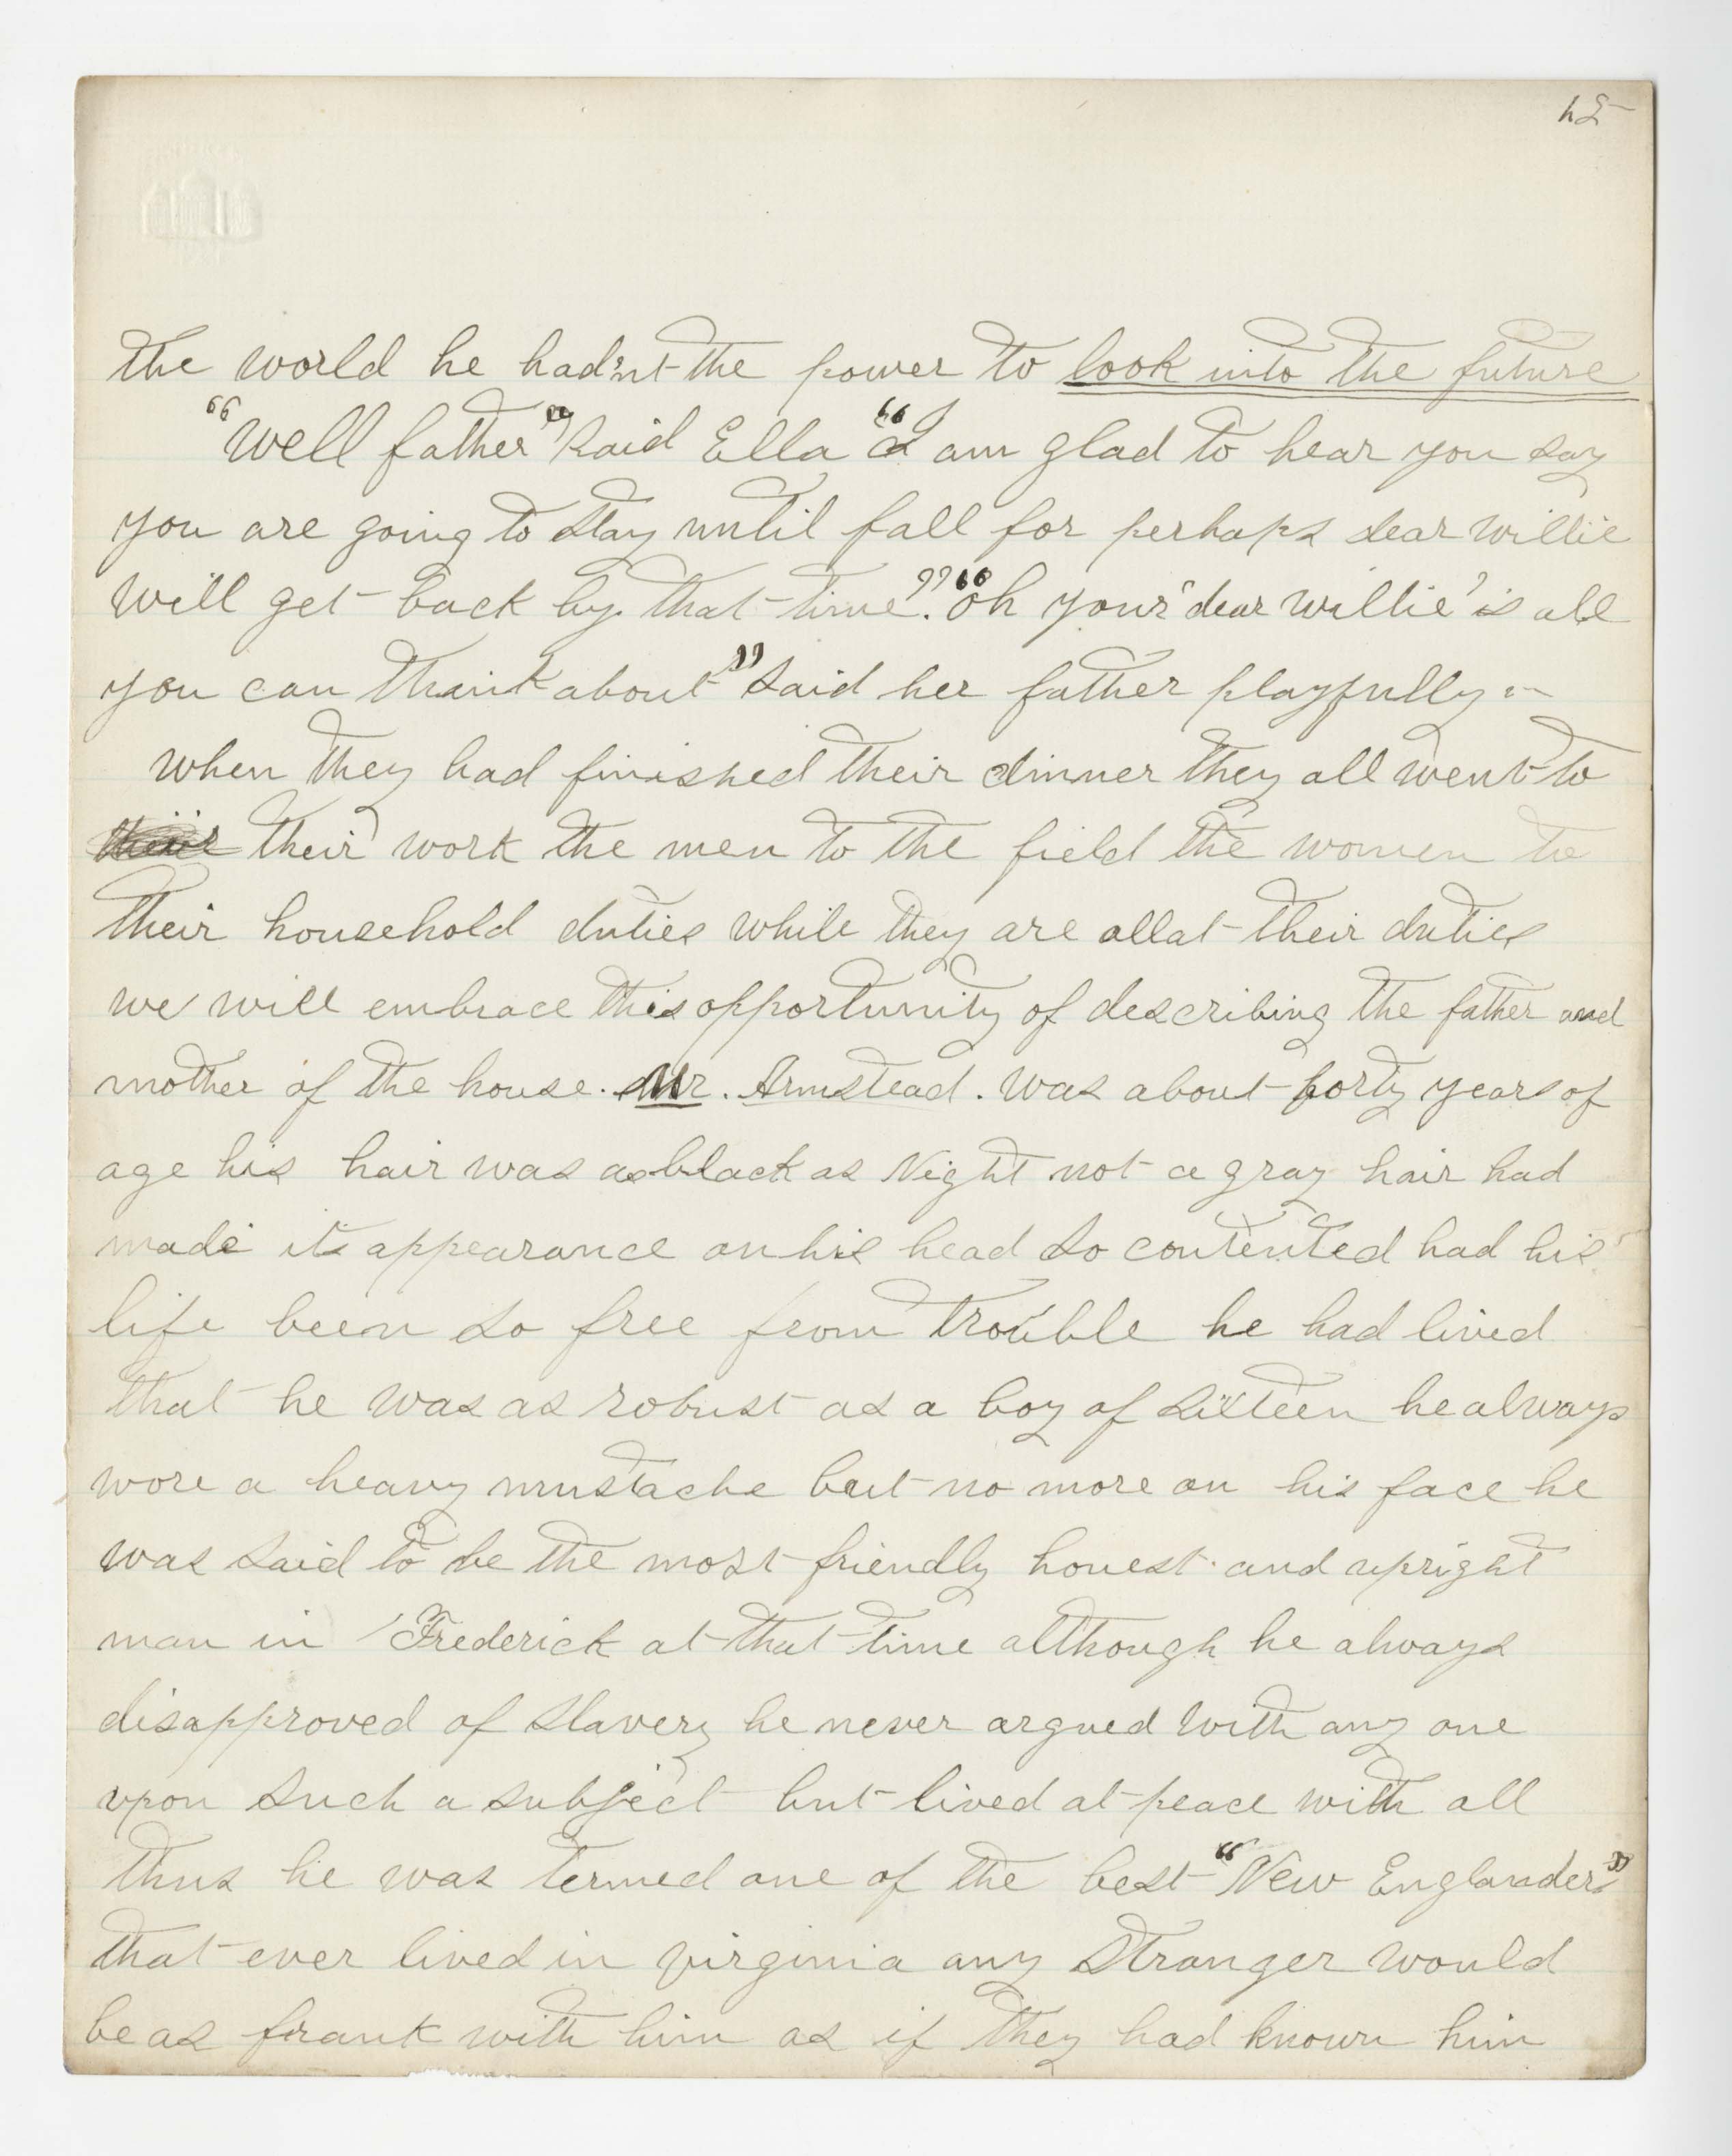 the world he hadn't the power to look into the future
"Well father" said Ella "I am glad to hear you say
you are going to stay until fall for perhaps dear willie
will get back by that time." "oh your 'dear Willie' is all
you can think about" said her father playfully
when they had finished their dinner they all went to
their their work the men to the field the women to
their household duties while they are all at their duties
we will embrace this opportunity of describing the father and
mother of the house. Mr. Armstead. was about forty years of
age his hair was as black as Night not a gray hair had
made its appearance on his head so contented had his
life been so free from trouble he had lived
that he was as robust as a boy of sixteen he always
wore a heavy mustache but no more on his face he
was said to be the most friendly honest and upright
man in Frederick at that time although he always
disapproved of slavery he never argued with any one
upon such a subject but lived at peace with all
thus he was termed one of the best "New Englanders"
that ever lived in virginia any stranger would
be as frank with him as if they had known him